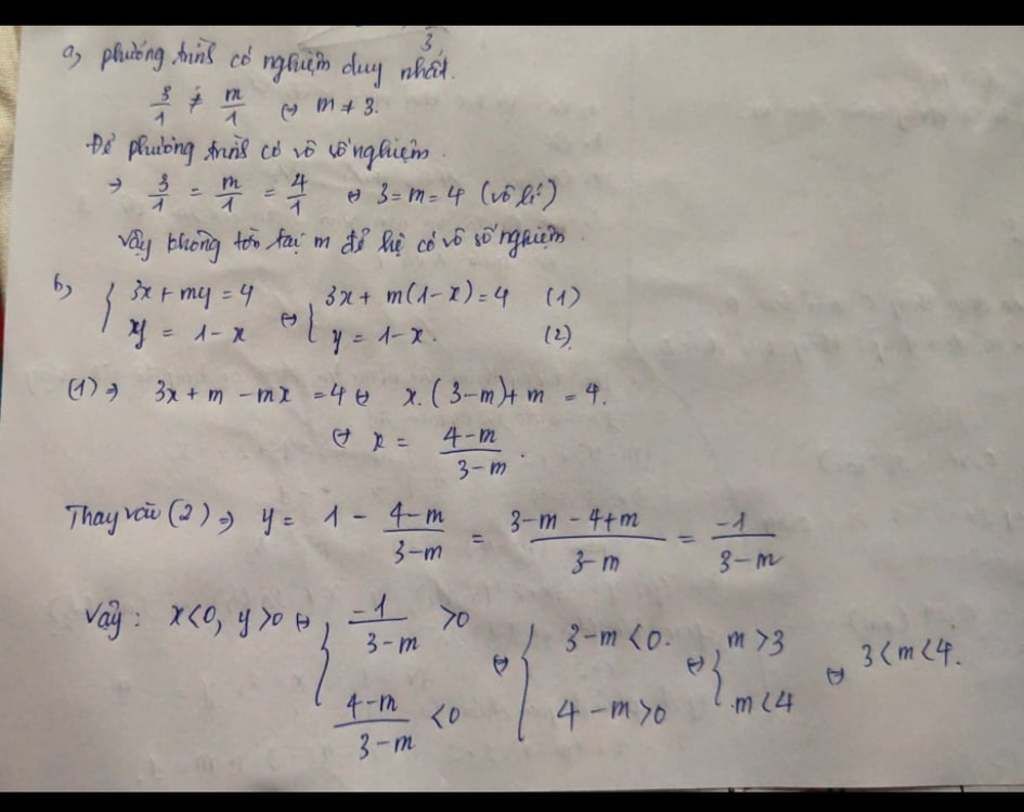 3
a, phương trình có nghiệm duy nhất.
3/1 ≠ m/1 ⇔ m ≠ 3.
Để phương trình có vô số nghiệm.
⇒ 3/1 = m/1 = 4/1 ⇔ 3 = m = 4 (vô lí)
Vậy không tồn tại m để hệ có vô số nghiệm.
b, { 3x + my = 4 ⇔ { 3x + m(1-x) = 4 (1)
y = 1-x y = 1-x. (2)
(1) ⇒ 3x + m - mx = 4 ⇔ x.(3-m) + m = 4.
⇔ x = (4-m)/(3-m).
Thay vào (2) ⇒ y = 1 - (4-m)/(3-m) = (3-m-4+m)/(3-m) = -1/(3-m)
Vậy: x<0, y>0 ⇔ { -1/(3-m) >0 ⇔ { 3-m <0. ⇔ { m >3 ⇔ 3<m<4.
(4-m)/(3-m) <0 4-m >0 m<4